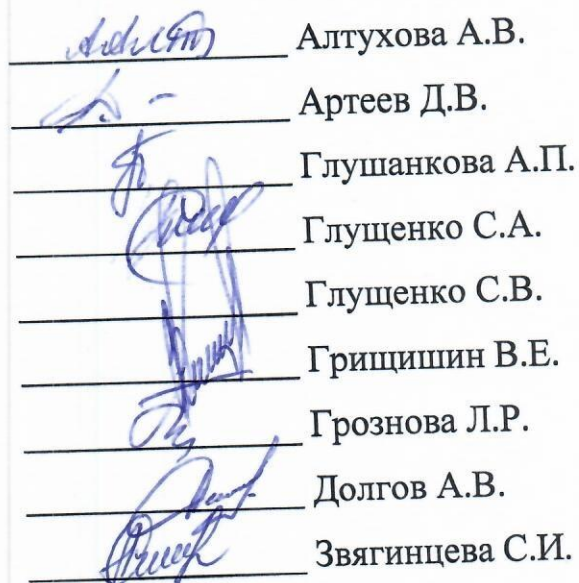 Алтухова А.В.
Артеев Д.В.
Глушанкова А.П.
Глущенко С.А.
Глущенко С.В.
Грищишин В.Е.
Грознова Л.Р.
Долгов А.В.
Звягинцева С.И.